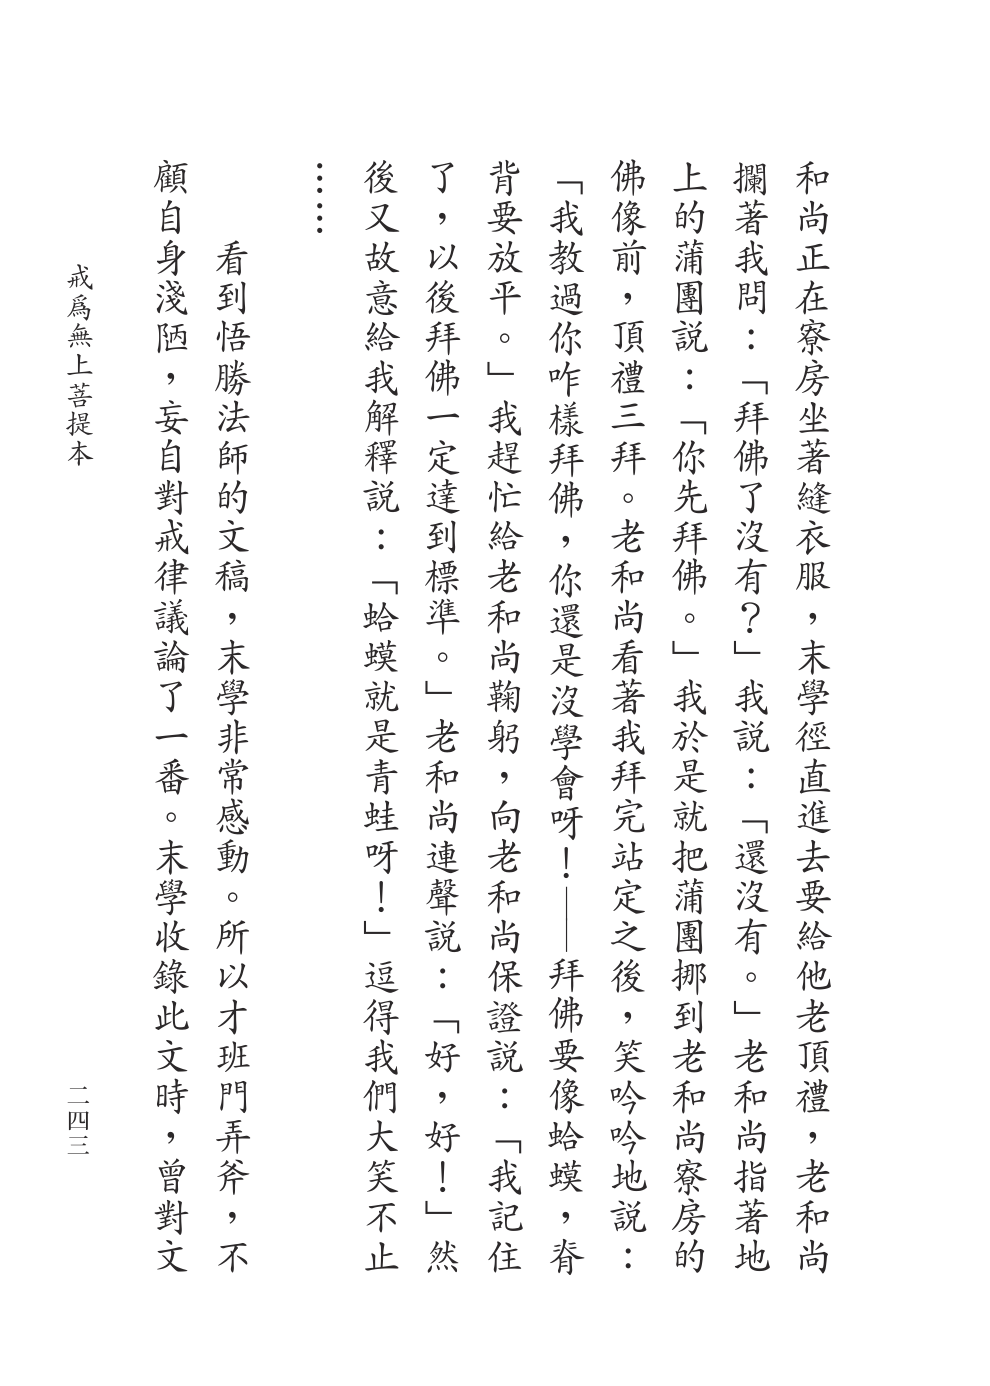 和尚正在寮房坐著縫衣服，末學徑直進去要給他老頂禮，老和尚
攔著我問：「拜佛了沒有？」我説：「還沒有。」老和尚指著地
上的蒲團説：「你先拜佛。」我於是就把蒲團挪到老和尚寮房的
佛像前，頂禮三拜。老和尚看著我拜完站定之後，笑吟吟地説：
「我教過你咋樣拜佛，你還是沒學會呀！——拜佛要像蛤蟆，脊
背要放平。」我趕忙給老和尚鞠躬，向老和尚保證説：「我記住
了，以後拜佛一定達到標準。」老和尚連聲説：「好，好！」然
後又故意給我解釋説：「蛤蟆就是青蛙呀！」逗得我們大笑不止
……
看到悟勝法師的文稿，末學非常感動。所以才班門弄斧，不
顧自身淺陋，妄自對戒律議論了一番。末學收錄此文時，曾對文
戒爲無上菩提本
二四三